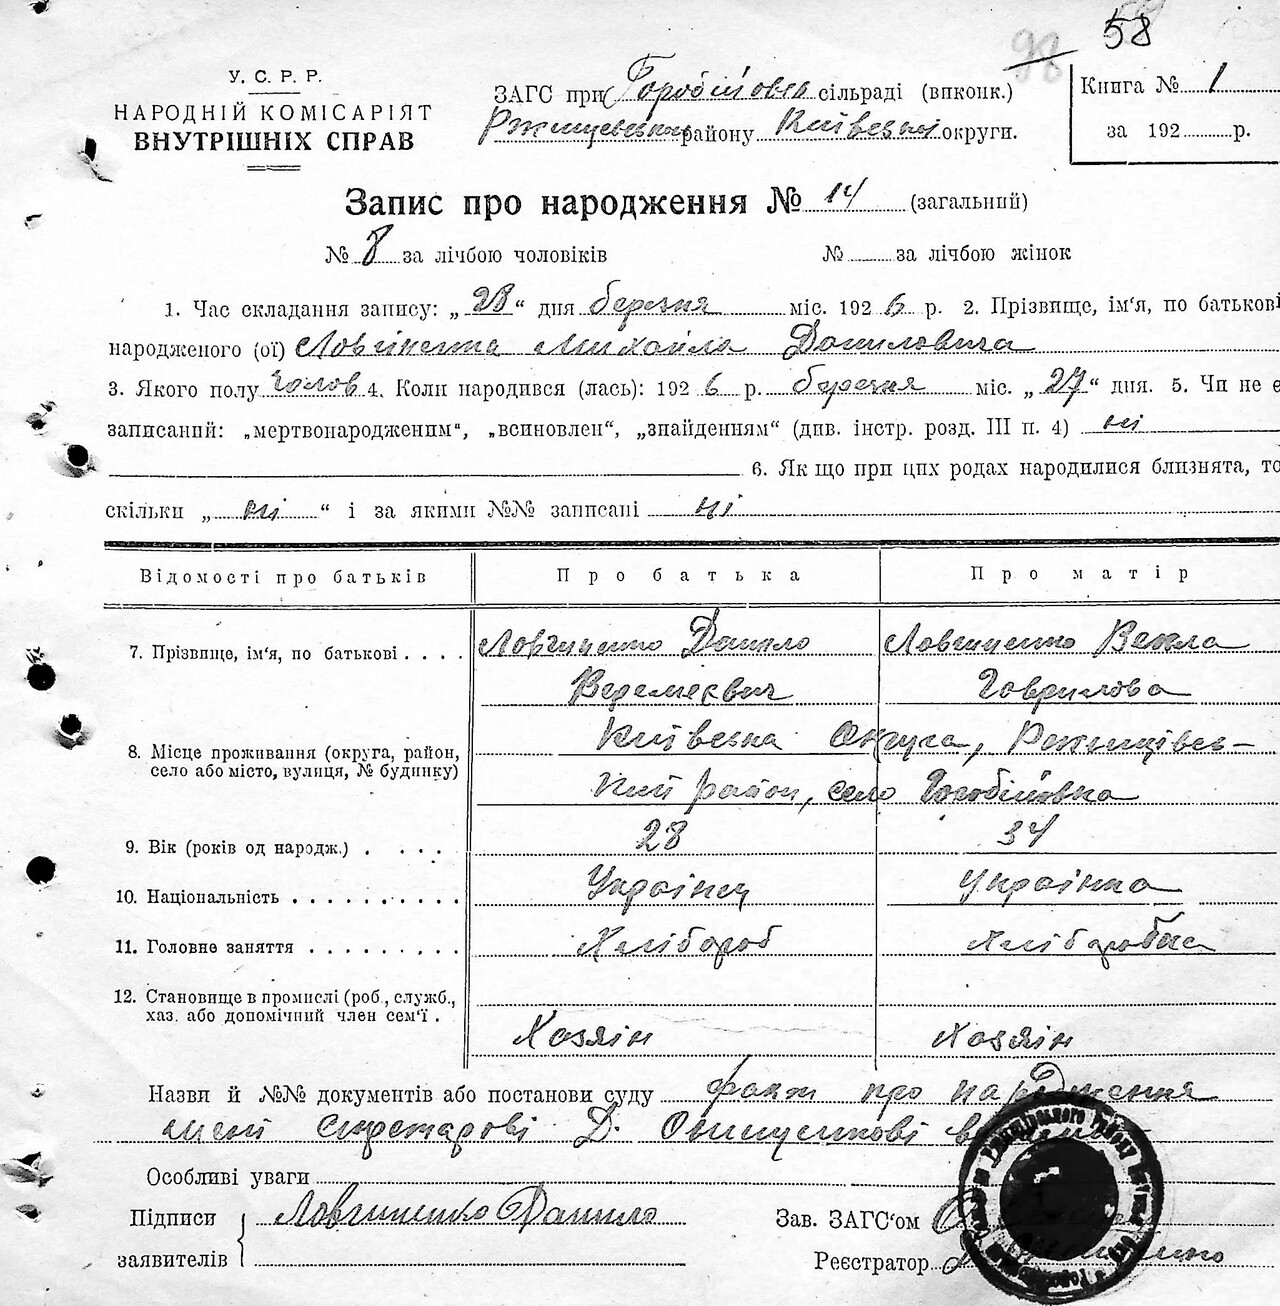 58
98
У. С. Р. Р.
НАРОДНІЙ КОМІСАРІЯТ
ВНУТРІШНІХ СПРАВ
ЗАГС при Горобіївській сільраді (виконк.)
Ржищевськім району Київськой округи.
Книга № 1
за 192 р.
Запис про народження № 14 (загальний)
№ 8 за лічбою чоловіків № за лічбою жінок
1. Час складання запису: „28“ дня березня міс. 1926 р. 2. Прізвище, ім‘я, по батькові
народженого (ої) Ловгиненка Михайла Даниловича
3. Якого полу Чолов 4. Коли народився (лась): 1926 р. березня міс. „27“ дня. 5. Чи не є
записаний: „мертвонародженим“, „всиновлен“, „знайденням“ (див. інстр. розд. III п. 4) ні
6. Як що при цих родах народилися близнята, то
скільки „ні“ і за якими №№ записані ні
Відомості про батьків Про батька Про матір
7. Прізвище, ім‘я, по батькові Ловгиненко Данило Ловгиненко Векла
Веремієвич Гаврилова
8. Місце проживання (округа, район, село або місто, вулиця, № будинку) Київська Округа, Ржищівсь-
кий район, село Горобіївка
9. Вік (років од народж.) 28 34
10. Національність Українец Українка
11. Головне заняття Хлібороб Хліборобка
12. Становище в промислі (роб., служб.,
хаз. або допомічний член сем‘ї . Хозяїн Хозяїн
Назви й №№ документів або постанови суду факт про народження
мені секретарові Д.
Особливі уваги
Підписи
заявителів
Ловгиненко Данило
Зав. ЗАГС‘ом
Реєстратор